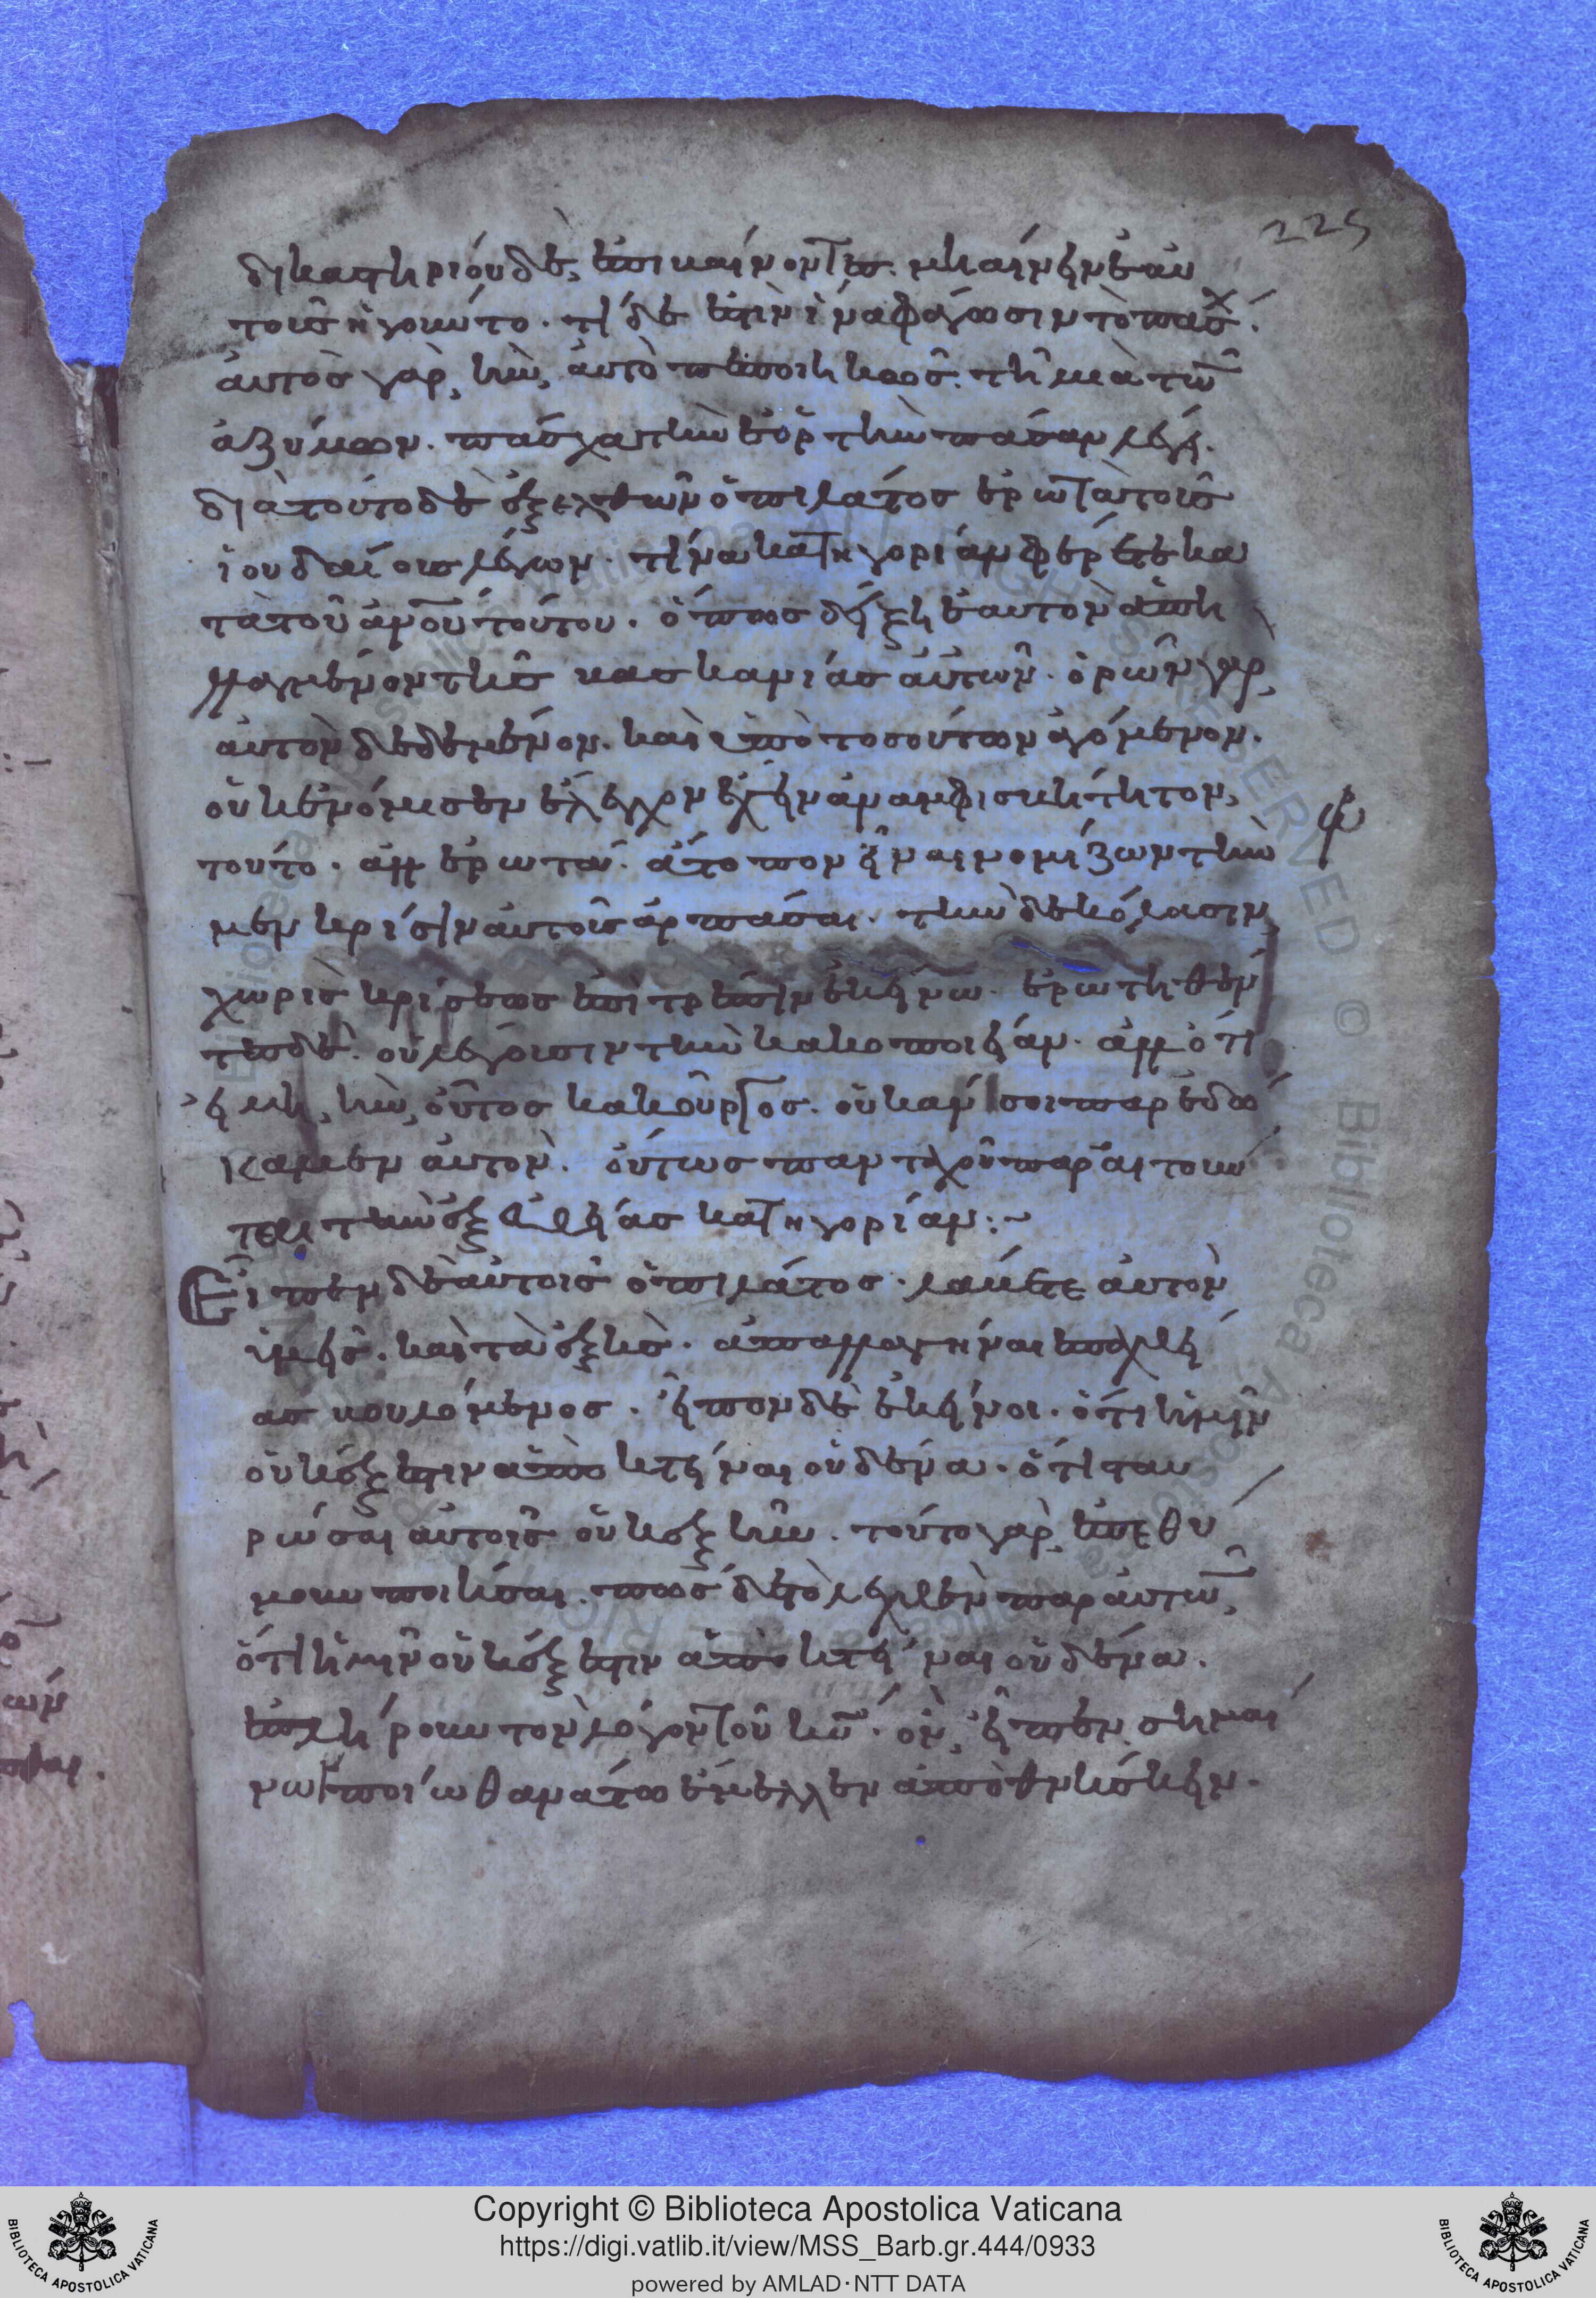 225
δικαστηρίου δὲ, ἐπικαίνοντες. μιαίνειν ἑαυ
τοὺς ἡγοῦντο. τί δέ ἐστιν ἵνα φάγωσιν τὸ πάσχ.
αὐτὸς γὰρ, ἦν, αὐτὸ πεποιηκὼς. τῆ μιὰ τῶν
ἀζύμων. πάσχα τὴν ἑορτὴν πᾶσαν λέγει.
διὰ τοῦτο δὲ ἐξελθὼν ὁ πιλάτος ἐρωτᾶ τοὺς
ἰουδαίους λέγων. τίνα κατηγορίαν φέρετε κα
τὰ τοῦ ἀνου τούτου. ὅπως δείξη ἑαυτὸν ἀπη
λλαγμένον τῆς βασκανίας αὐτῶν. ὁρῶν γὰρ,
αὐτὸν δεδεμένον. καὶ ὑπὸ τοσούτων ἀγόμενον.
οὐκ ἐνόμισεν ἔλεγχον ἔχειν ἀναμφισβήτητον,
τοῦτο. ἀλλ ἐρωτᾶ. ἄτοπον εἶναι νομίζων τὴν
μεν κρίσιν αὐτοῖς ἁρπάσαι. τὴν δὲ κόλασιν,
χωρὶς κρίσεως ἐπιτρέπειν ἐκείνω. ἐρωτηθέν
τες δὲ. οὐ λέγουσιν τὴν κακοποιείαν. ἀλλ ὅτι
εἰ μὴ, ἦν, οὗτος κακοῦργος. οὐκ ἄν σοι παρεδώ
καμεν αὐτον. οὕτως πανταχοῦ παραιτοῦν
ται τὴν ἐξ εὐθείας κατηγορίαν:~
Εἶπεν δὲ αὐτοῖς ὁ πιλάτος. λάβετε αὐτὸν
ὑμεῖς. καὶ τὰ ἐξῆς. ἀπαλλαγῆναι
ας βουλόμενος. εἶπον δὲ ἐκεῖνοι. ὅτι ἡμῖν
οὐκ ἔξεστιν ἀποκτεῖναι οὐδένα. ὅτι σταυ
ρῶσαι αὐτοῖς οὐκ ἐξῆν. τοῦτο γὰρ, ἐπεθύ
μουν ποιῆσαι. πῶς δὲ τὸ λεχθὲν παρ αὐτῶν,
ὅτι ἡμῖν οὐκ ἔξεστιν ἀποκτεῖναι οὐδένα.
ἐπλήρουν τὸν λόγον τοῦ κυ. ὃν, εἶπεν σημαί
νων ποίω θανάτω ἔμελλεν ἀποθνήσκειν.
Copyright © Biblioteca Apostolica Vaticana
https://digi.vatlib.it/view/MSS_Barb.gr.444/0933
powered by AMLAD·NTT DATA
BIBLIOTECA APOSTOLICA VATICANA
BIBLIOTECA APOSTOLICA VATICANA